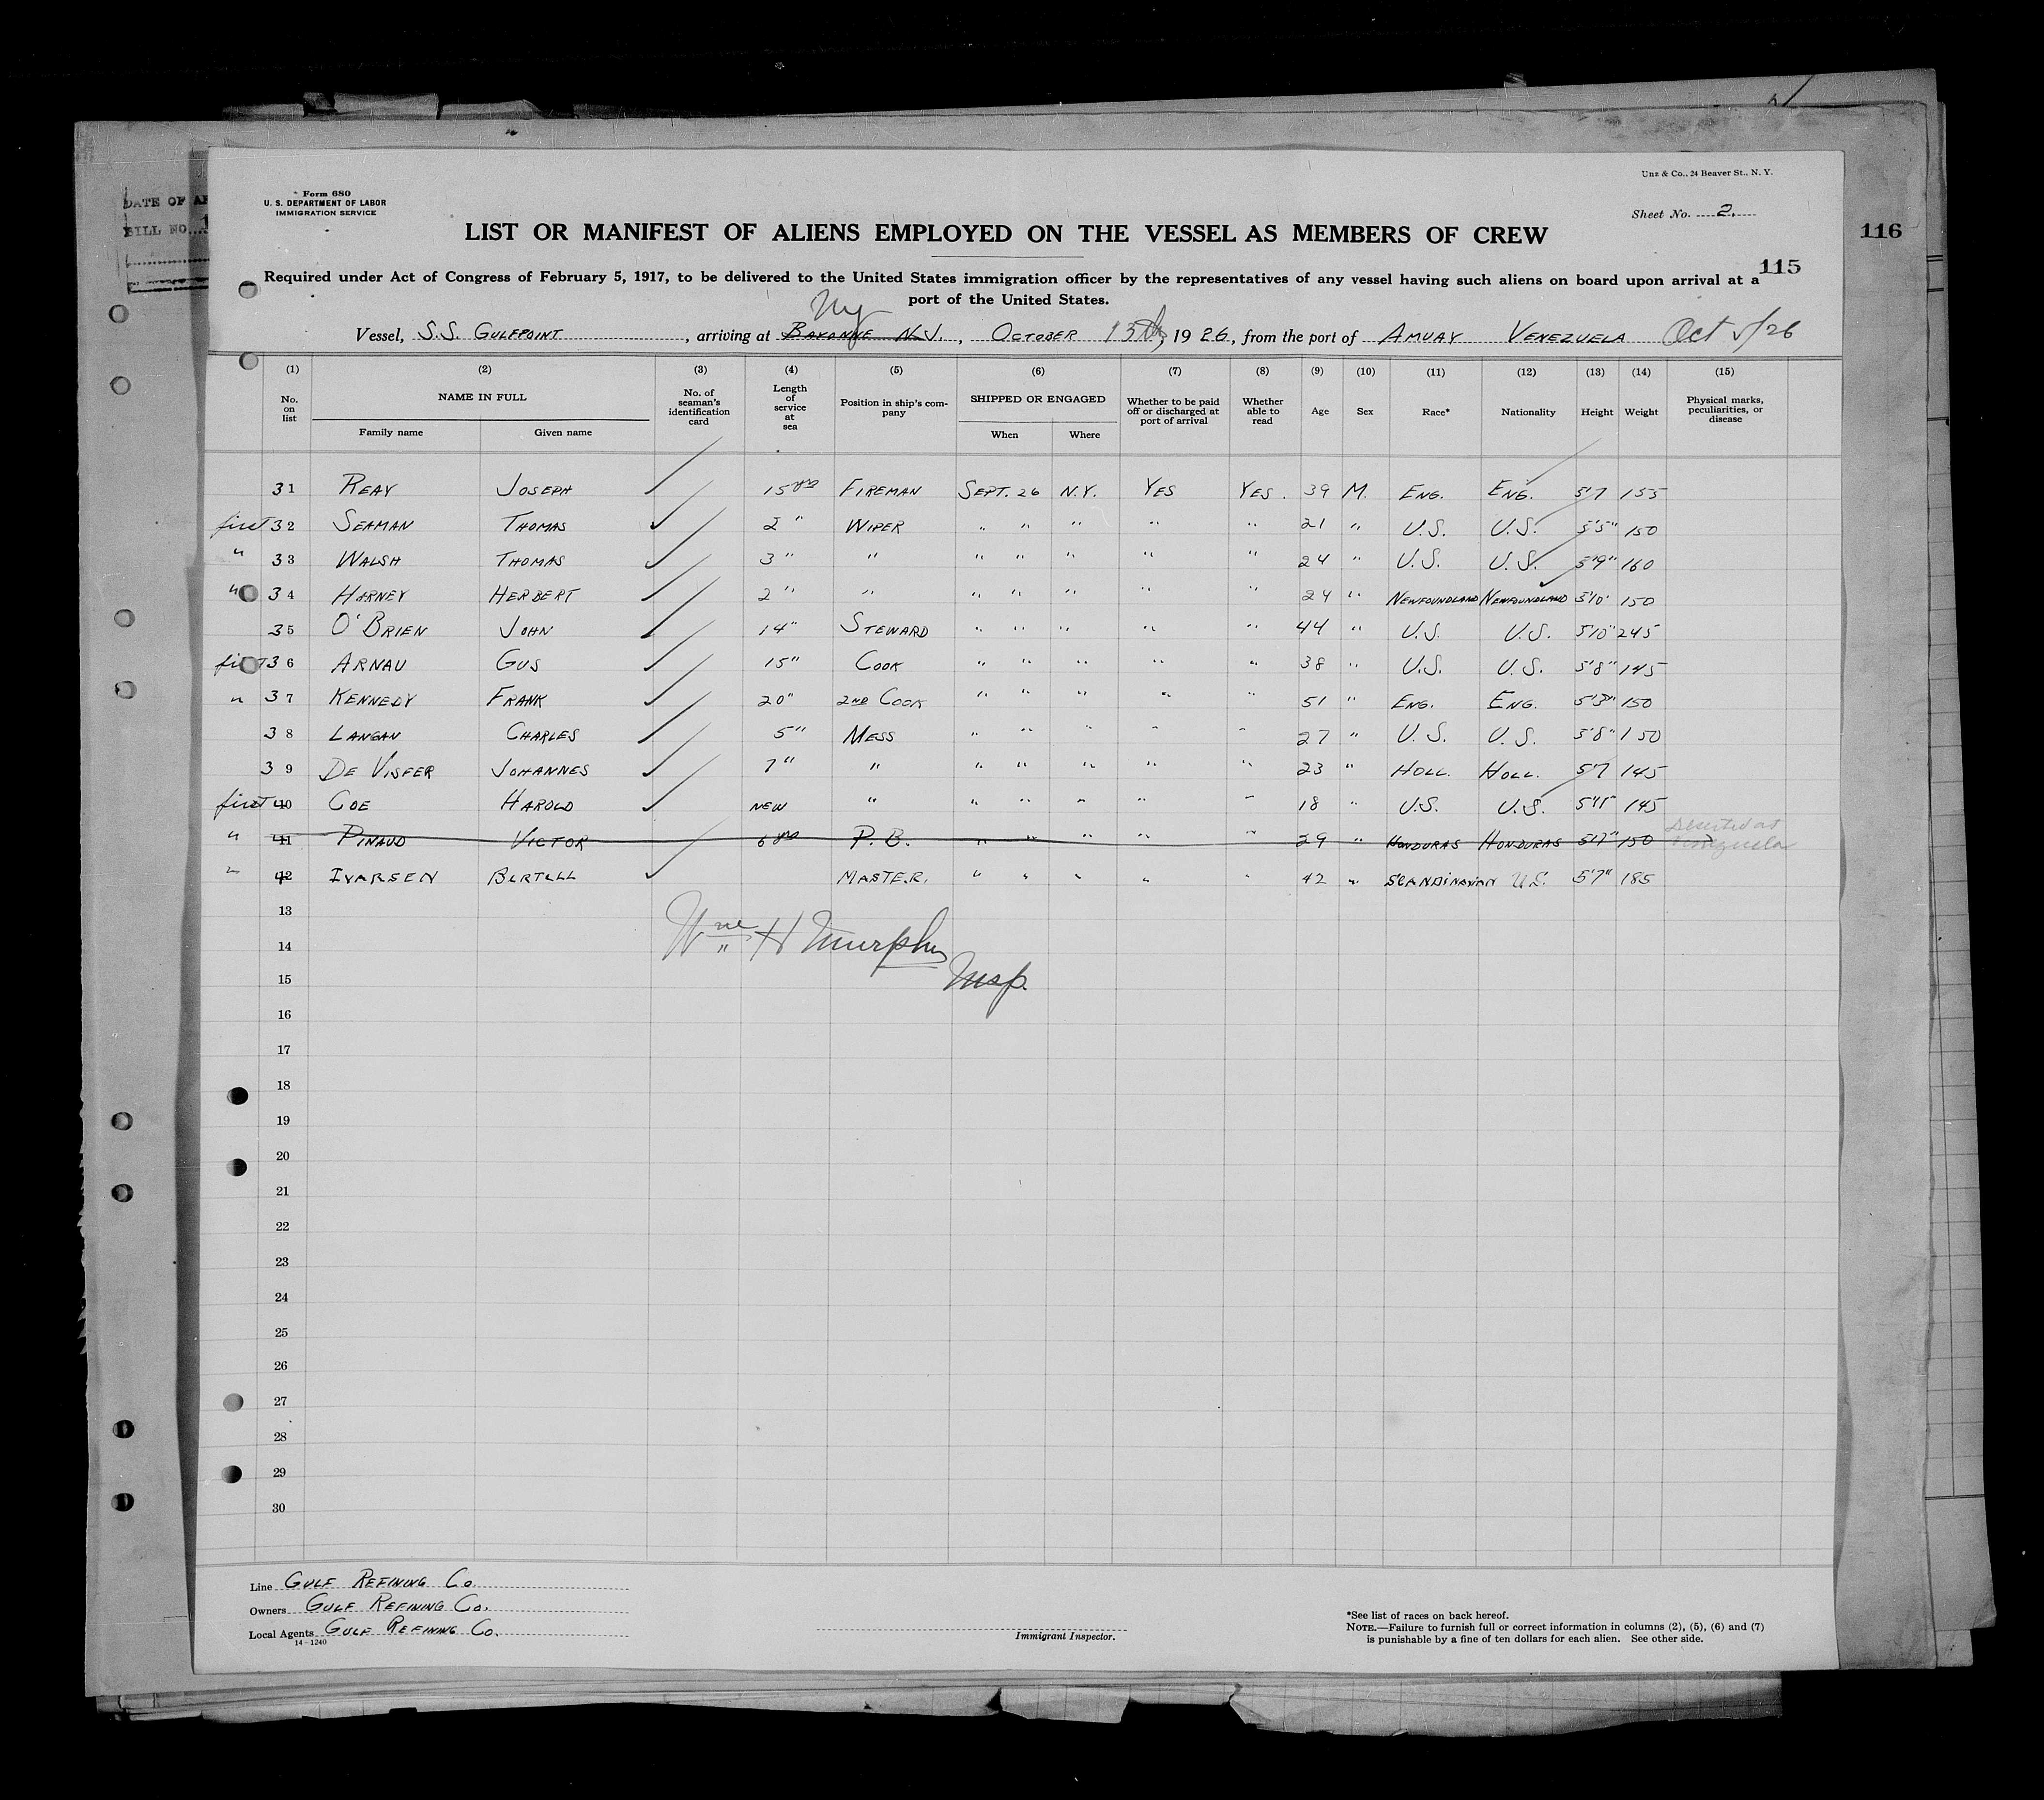 Form 680
U. S. DEPARTMENT OF LABOR
IMMIGRATION SERVICE
Unz & Co., 24 Beaver St., N. Y.
Sheet No. 2.
LIST OR MANIFEST OF ALIENS EMPLOYED ON THE VESSEL AS MEMBERS OF CREW
116
115
Required under Act of Congress of February 5, 1917, to be delivered to the United States immigration officer by the representatives of any vessel having such aliens on board upon arrival at a
port of the United States.
DATE OF
BILL NO.
Ny
Vessel, S.S. GULFPOINT, arriving at BAYONNE N.J., OCTOBER 13th, 1926, from the port of AMUAY VENEZUELA Oct 5/26
(1) (2) (3) (4) (5) (6) (7) (8) (9) (10) (11) (12) (13) (14) (15)
No. on list NAME IN FULL Family name Given name No. of seaman's identification card Length of service at sea Position in ship's company SHIPPED OR ENGAGED When Where Whether to be paid off or discharged at port of arrival Whether able to read Age Sex Race* Nationality Height Weight Physical marks, peculiarities, or disease
31 REAY JOSEPH ✓ 15 yrs FIREMAN SEPT. 26 N.Y. YES YES. 39 M. ENG. ENG. 5'7 155
first 32 SEAMAN THOMAS ✓ 2 " WIPER " " " " " 21 " U.S. U.S. 5'5" 150
" 33 WALSH THOMAS ✓ 3 " " " " " " " 24 " U.S. U.S. 5'9" 160
" 34 HARNEY HERBERT ✓ 2 " " " " " " " 24 " NEWFOUNDLAND NEWFOUNDLAND 5'10" 150
35 O'BRIEN JOHN ✓ 14 " STEWARD " " " " " 44 " U.S. U.S. 5'10" 245
first 36 ARNAU GUS ✓ 15 " COOK " " " " " 38 " U.S. U.S. 5'8" 145
" 37 KENNEDY FRANK ✓ 20 " 2ND COOK " " " " " 51 " ENG. ENG. 5'3" 150
38 LANGAN CHARLES ✓ 5 " MESS " " " " " 27 " U.S. U.S. 5'8" 150
39 DE VISFER JOHANNES ✓ 7 " " " " " " " 23 " HOLL. HOLL. 5'7 145
first 40 COE HAROLD ✓ NEW " " " " " " 18 " U.S. U.S. 5'11" 145
" 41 PINAUD VICTOR 6 yrs P.B. " " " " " 29 " HONDURAS HONDURAS 5'7" 150 Deserted at Venezuela
" 42 IVARSEN BERTELL ✓ MASTER. " " " " " 42 " SCANDINAVIAN U.S. 5'7" 185
13
14
Wm H Murphy
15
Insp.
16
17
18
19
20
21
22
23
24
25
26
27
28
29
30
Line GULF REFINING CO.
Owners GULF REFINING CO.
Local Agents GULF REFINING CO.
14-1240
Immigrant Inspector.
*See list of races on back hereof.
NOTE.—Failure to furnish full or correct information in columns (2), (5), (6) and (7)
is punishable by a fine of ten dollars for each alien. See other side.